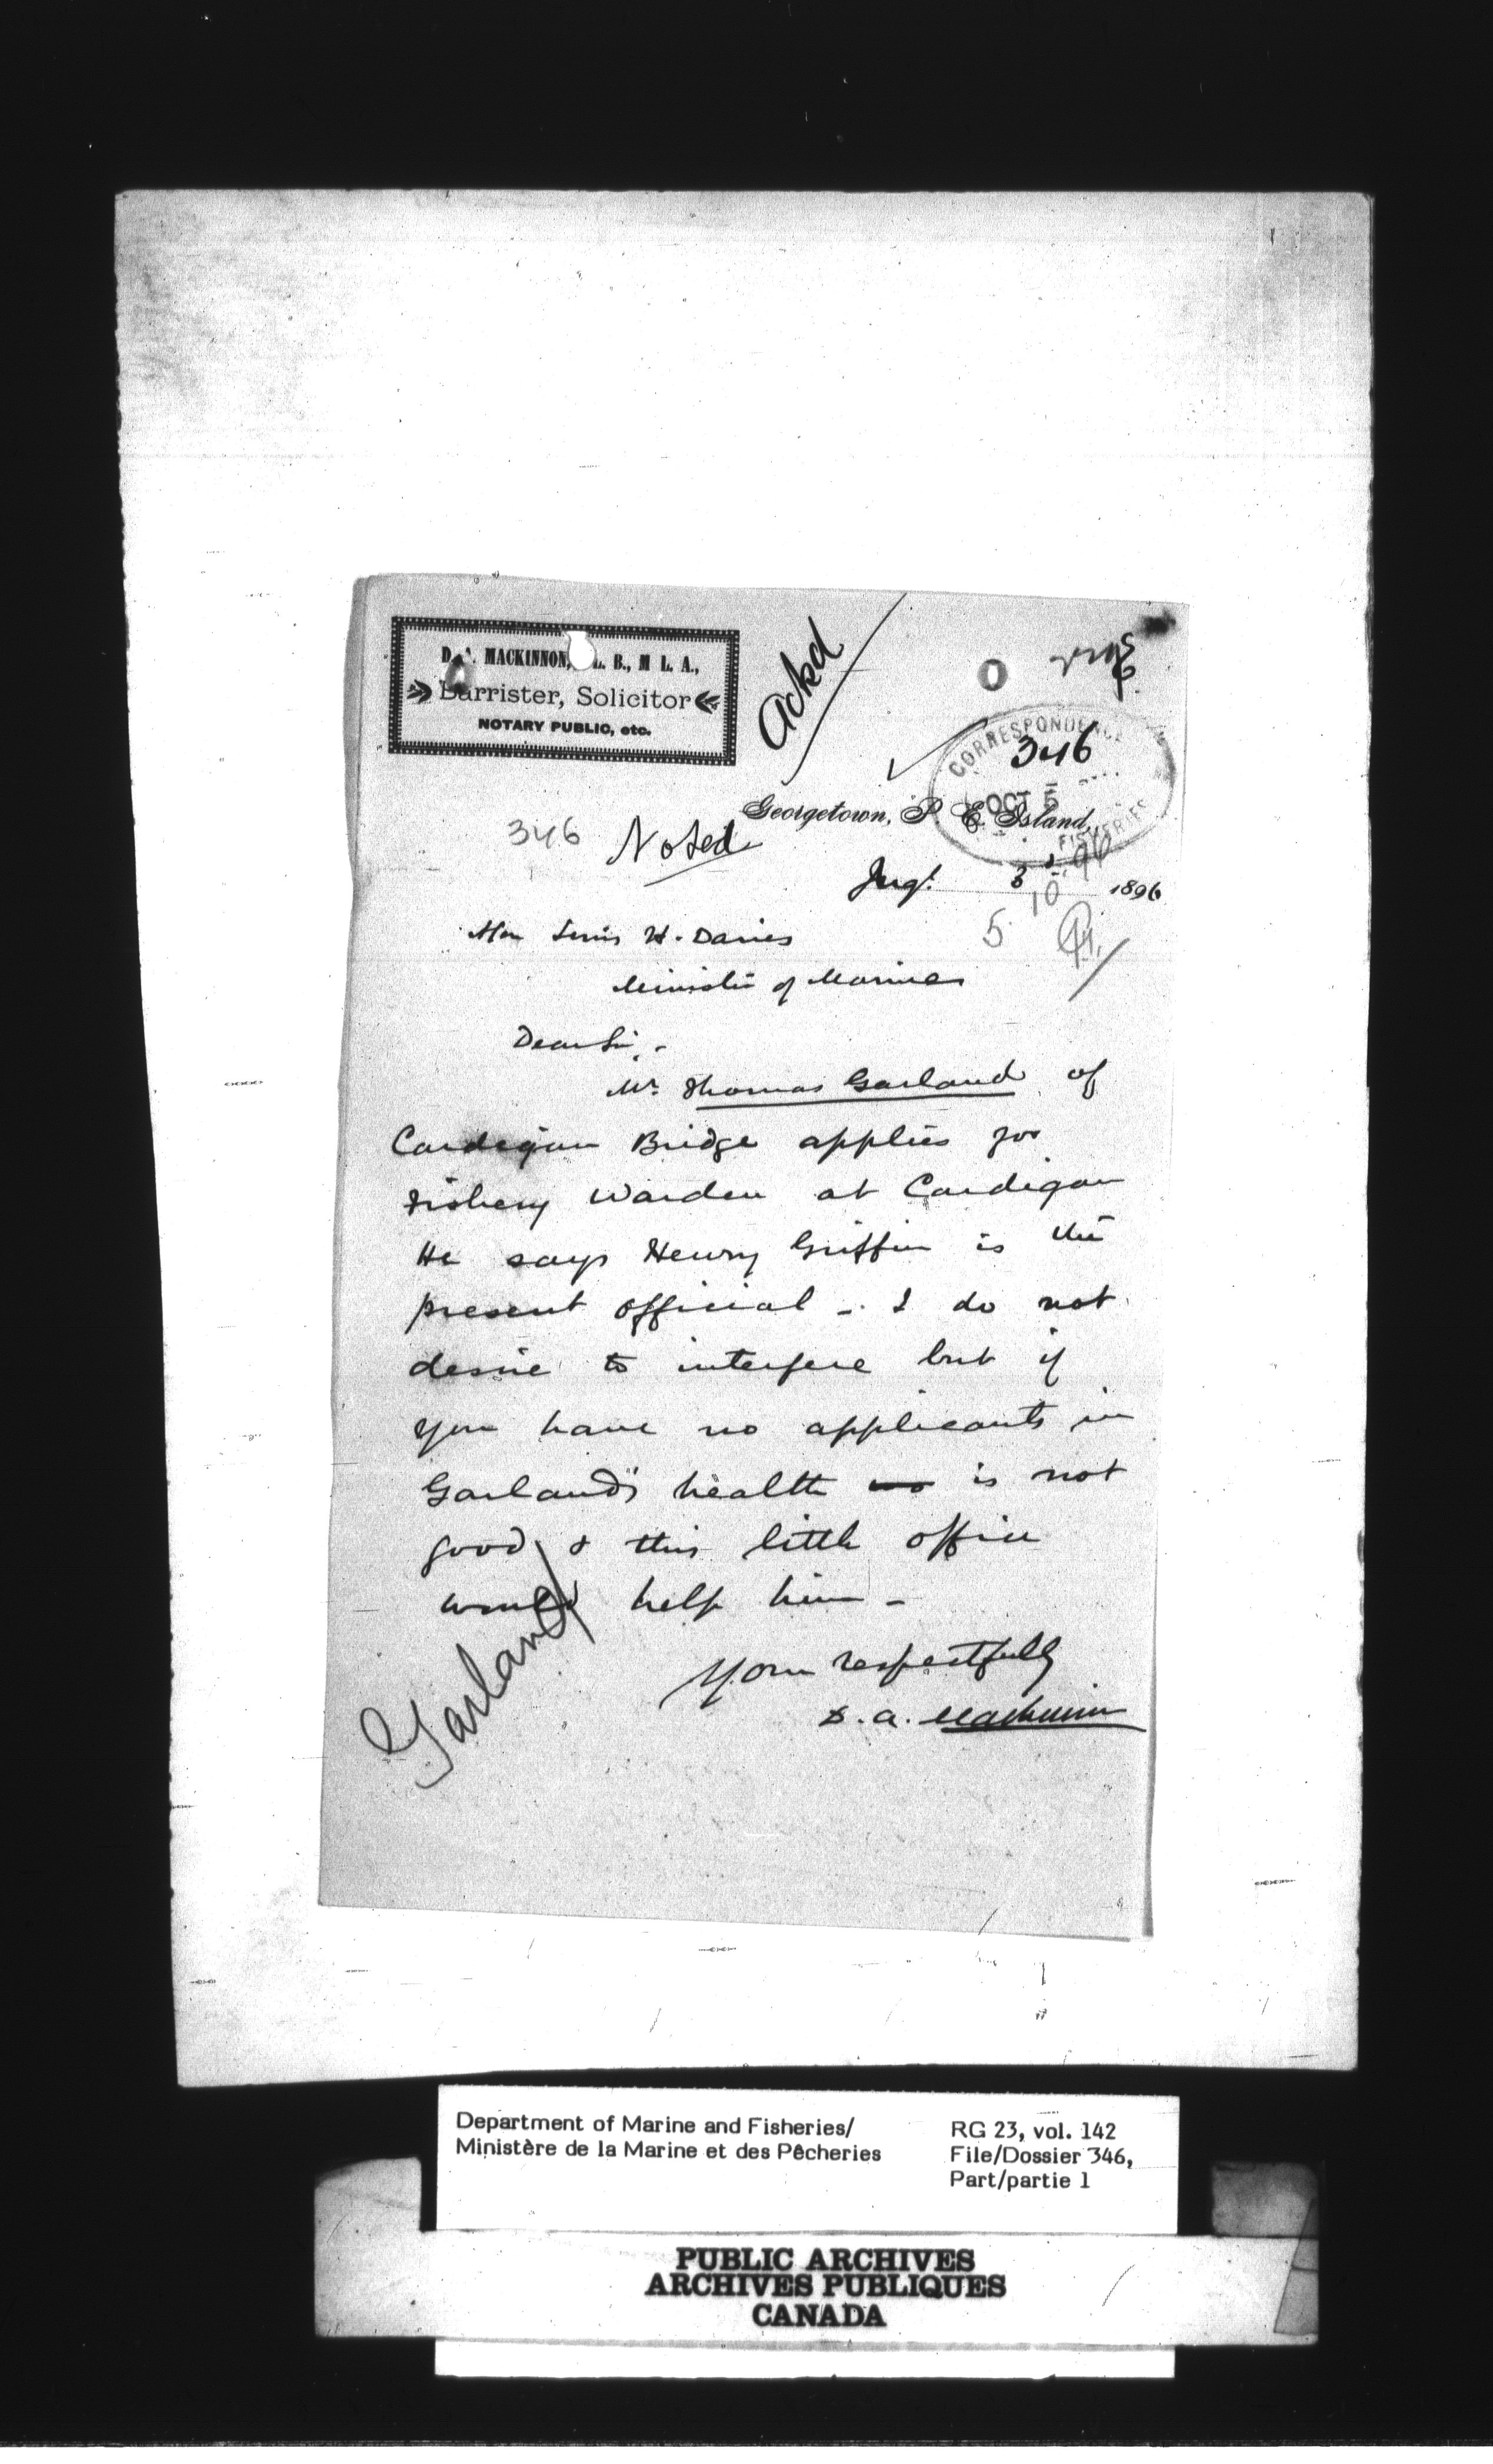 D. A. MACKINNON, L. B., M L. A.,
Barrister, Solicitor
NOTARY PUBLIC, etc.
Ackd
CORRESPONDENCE
346
OCT 5
FISHERIES
Georgetown, P. E. Island,
346 Noted
3 1896
5. 10. 96
Hon Louis H. Davies
Minister of Marine
Dear Sir, -
Mr. Thomas Garland of
Cardigan Bridge applies for
Fishery Warden at Cardigan
He says Henry Griffin is the
present official - I do not
desire to interfere but if
you have no applicants in
Garland's health is not
good & this little office
would help him -
Garland
Yours respectfully
D. A. Mackinnon
Department of Marine and Fisheries/
Ministère de la Marine et des Pêcheries
RG 23, vol. 142
File/Dossier 346,
Part/partie 1
PUBLIC ARCHIVES
ARCHIVES PUBLIQUES
CANADA